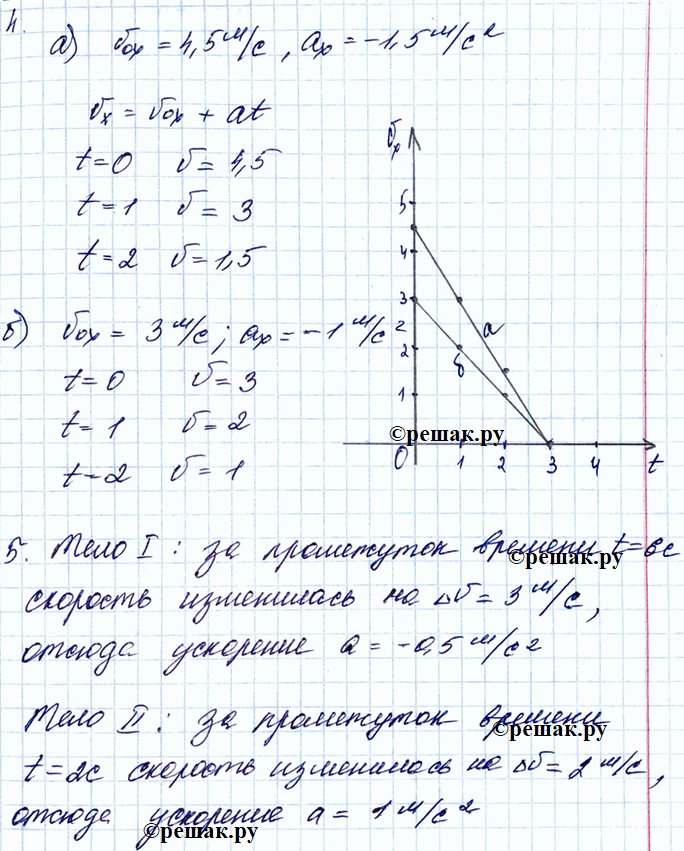 4.
а) υ₀ₓ = 4,5 м/с , aₓ = -1,5 м/с²
υₓ = υ₀ₓ + at
t=0 υ= 4,5
t=1 υ= 3
t=2 υ=1,5
б) υ₀ₓ = 3 м/с; aₓ = -1 м/с²
t=0 υ=3
t=1 υ=2
t-2 υ=1
υₓ
5
4
3
2
1
0 1 2 3 4 t
а
б
©решак.ру
5. Тело I : за промежуток времени t=6с
©решак.ру
скорость изменилась на Δυ= 3 м/с,
отсюда ускорение a = -0,5 м/с²
Тело II : за промежуток времени
©решак.ру
t=2с скорость изменилась на Δυ= 2 м/с,
отсюда ускорение a = 1 м/с²
©решак.ру